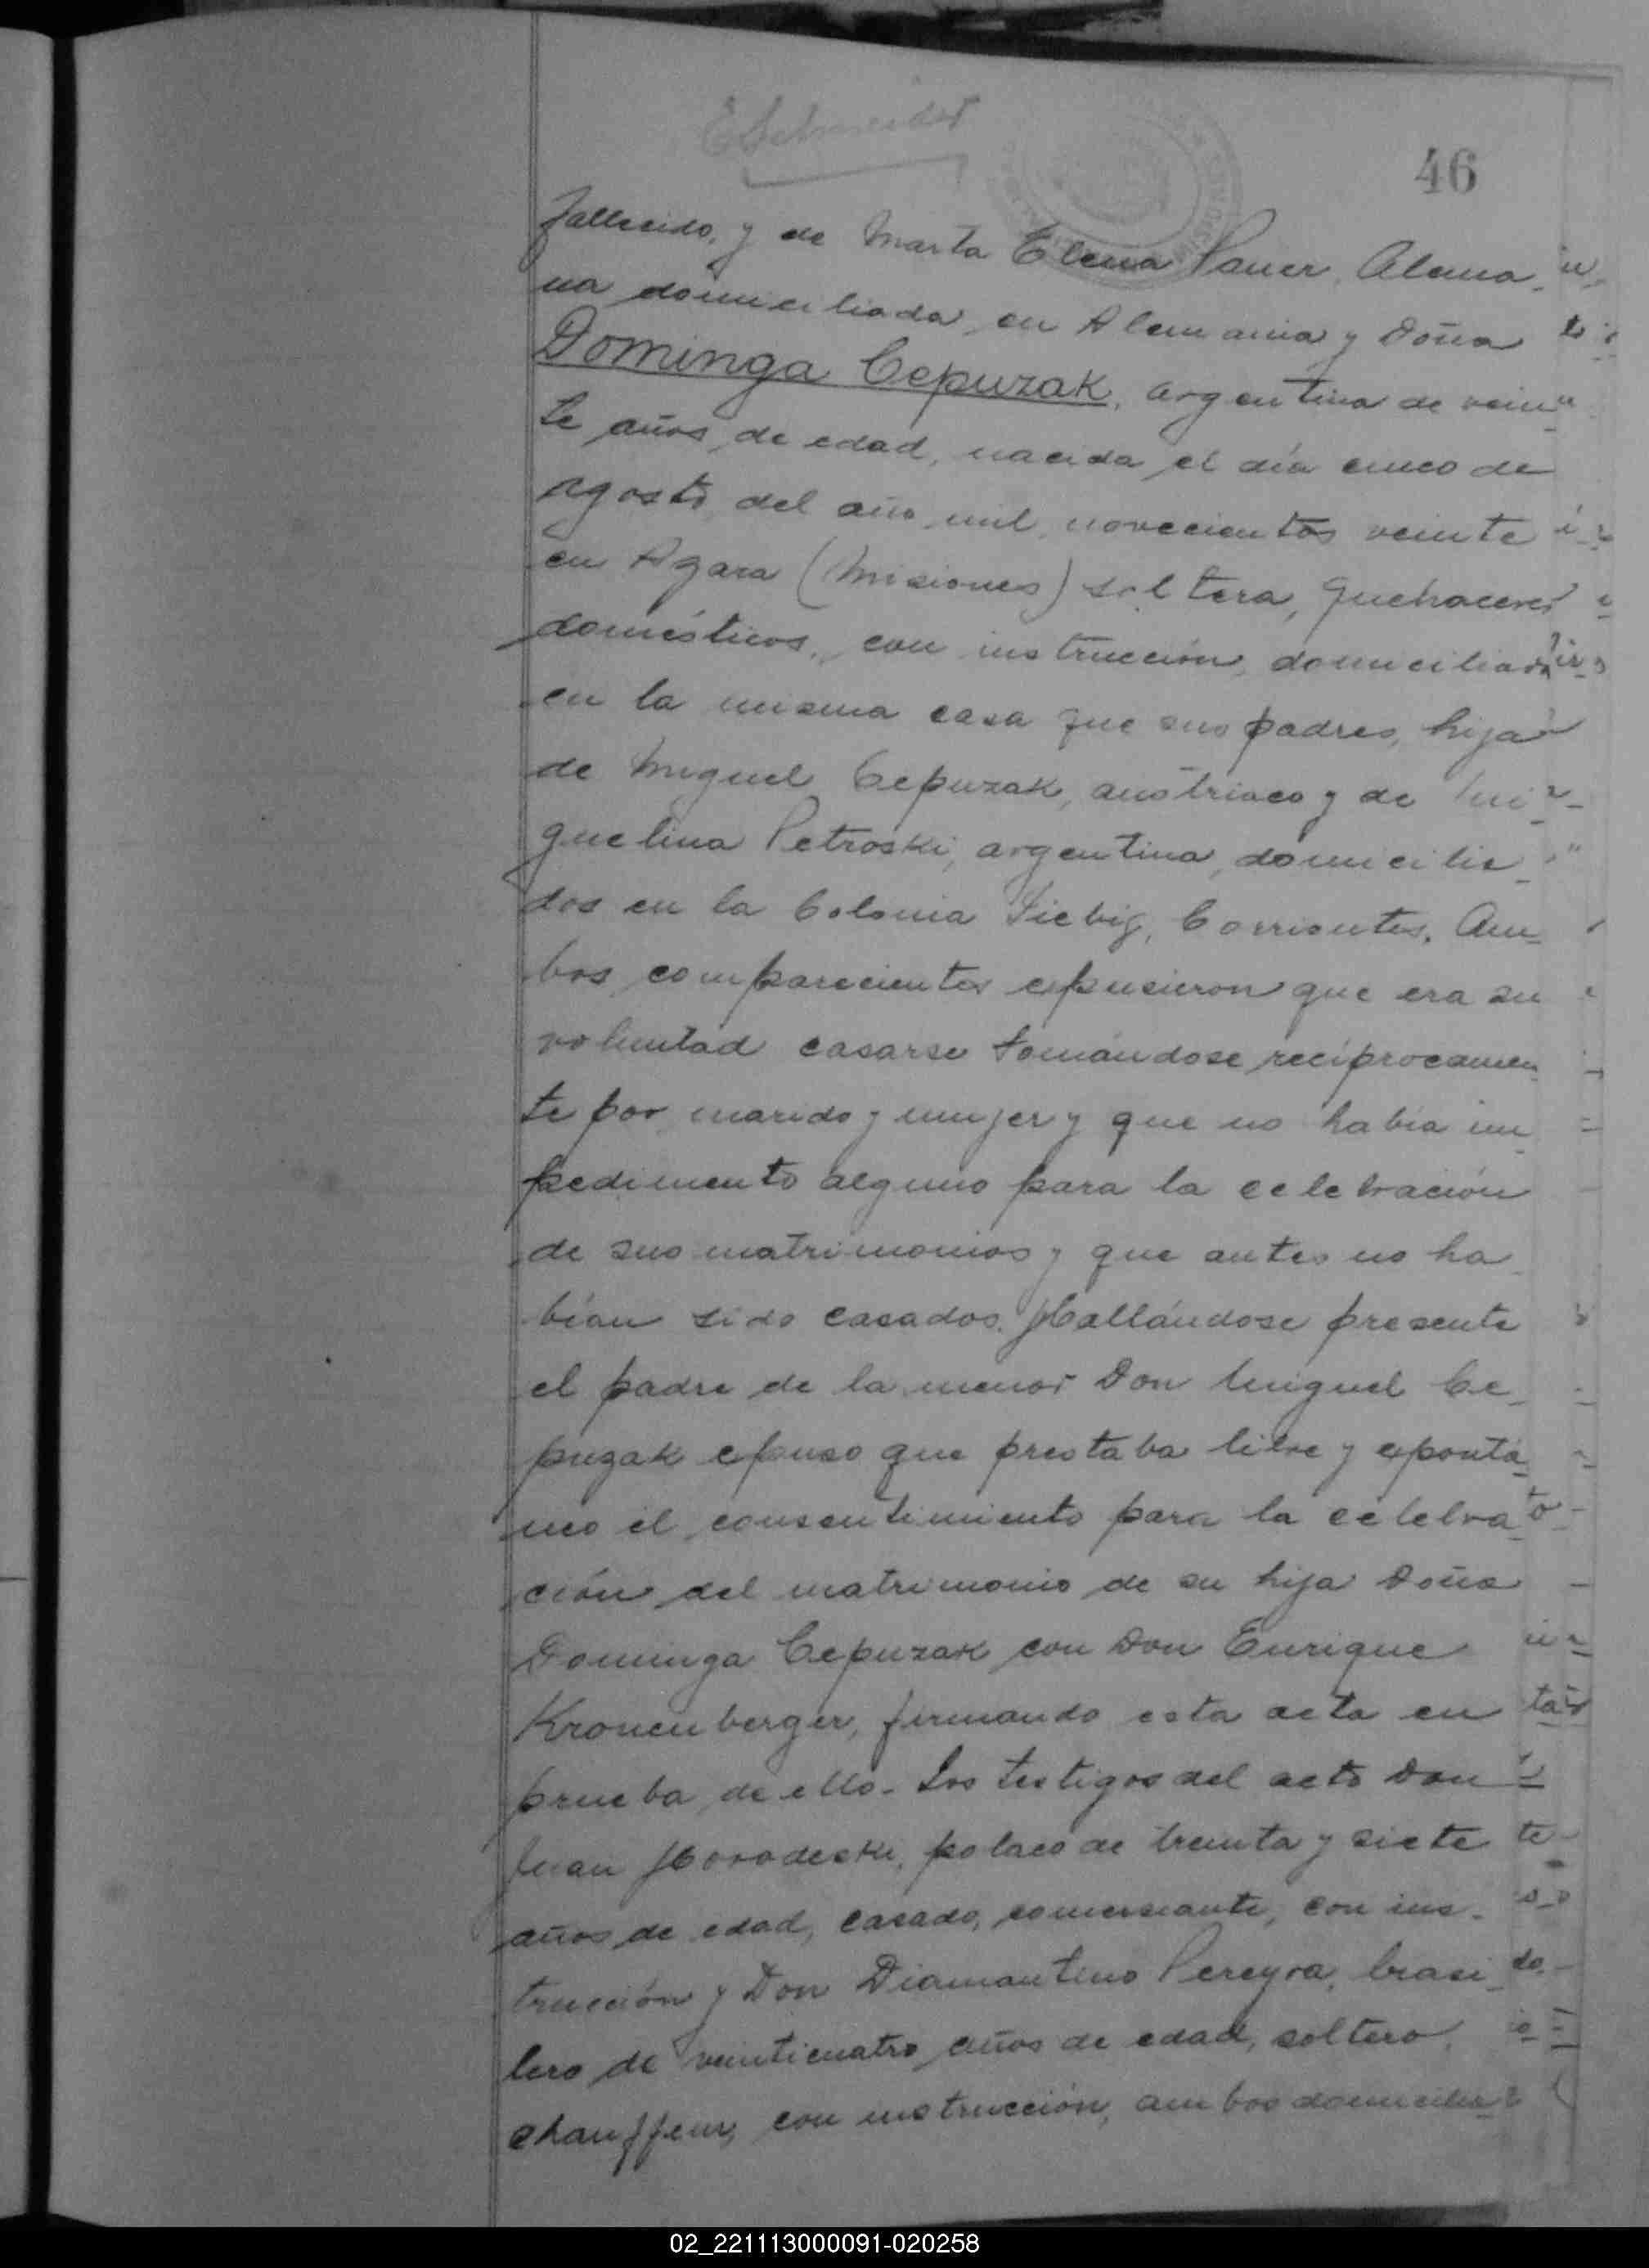 ESchneider
46
fallecido, y de Marta Elena Pauer, Alema-
na domiciliada en Alemania y Doña
Dominga Cepuzak, argentina de vein-
te años de edad, nacida el día cinco de
Agosto del año mil novecientos veinte
en Azara (Misiones) soltera, quehaceres
domésticos, con instrucción, domiciliada
en la misma casa que sus padres, hija
de Miguel Cepuzak, austriaco y de Mi-
guelina Petroski, argentina, domicilia-
dos en la Colonia Liebig, Corrientes. Am-
bos comparecientes expusieron que era su
voluntad casarse tomándose recíprocamen-
te por marido y mujer y que no había im-
pedimento alguno para la celebración
de sus matrimonios y que antes no ha-
bían sido casados. Hallándose presente
el padre de la menor Don Miguel Ce-
puzak expuso que prestaba libre y expontá-
neo el consentimiento para la celebra-
ción del matrimonio de su hija Doña
Dominga Cepuzak con Don Enrique
Kronenberger, firmando esta acta en
prueba de ello. Los testigos del acto Don
Juan Horodeski, polaco de treinta y siete
años de edad, casado, comerciante, con ins-
trucción y Don Diamantino Pereyra, brasi-
lero de veinticuatro años de edad, soltero,
chauffeur, con instrucción, ambos domicilia-
02_221113000091-020258